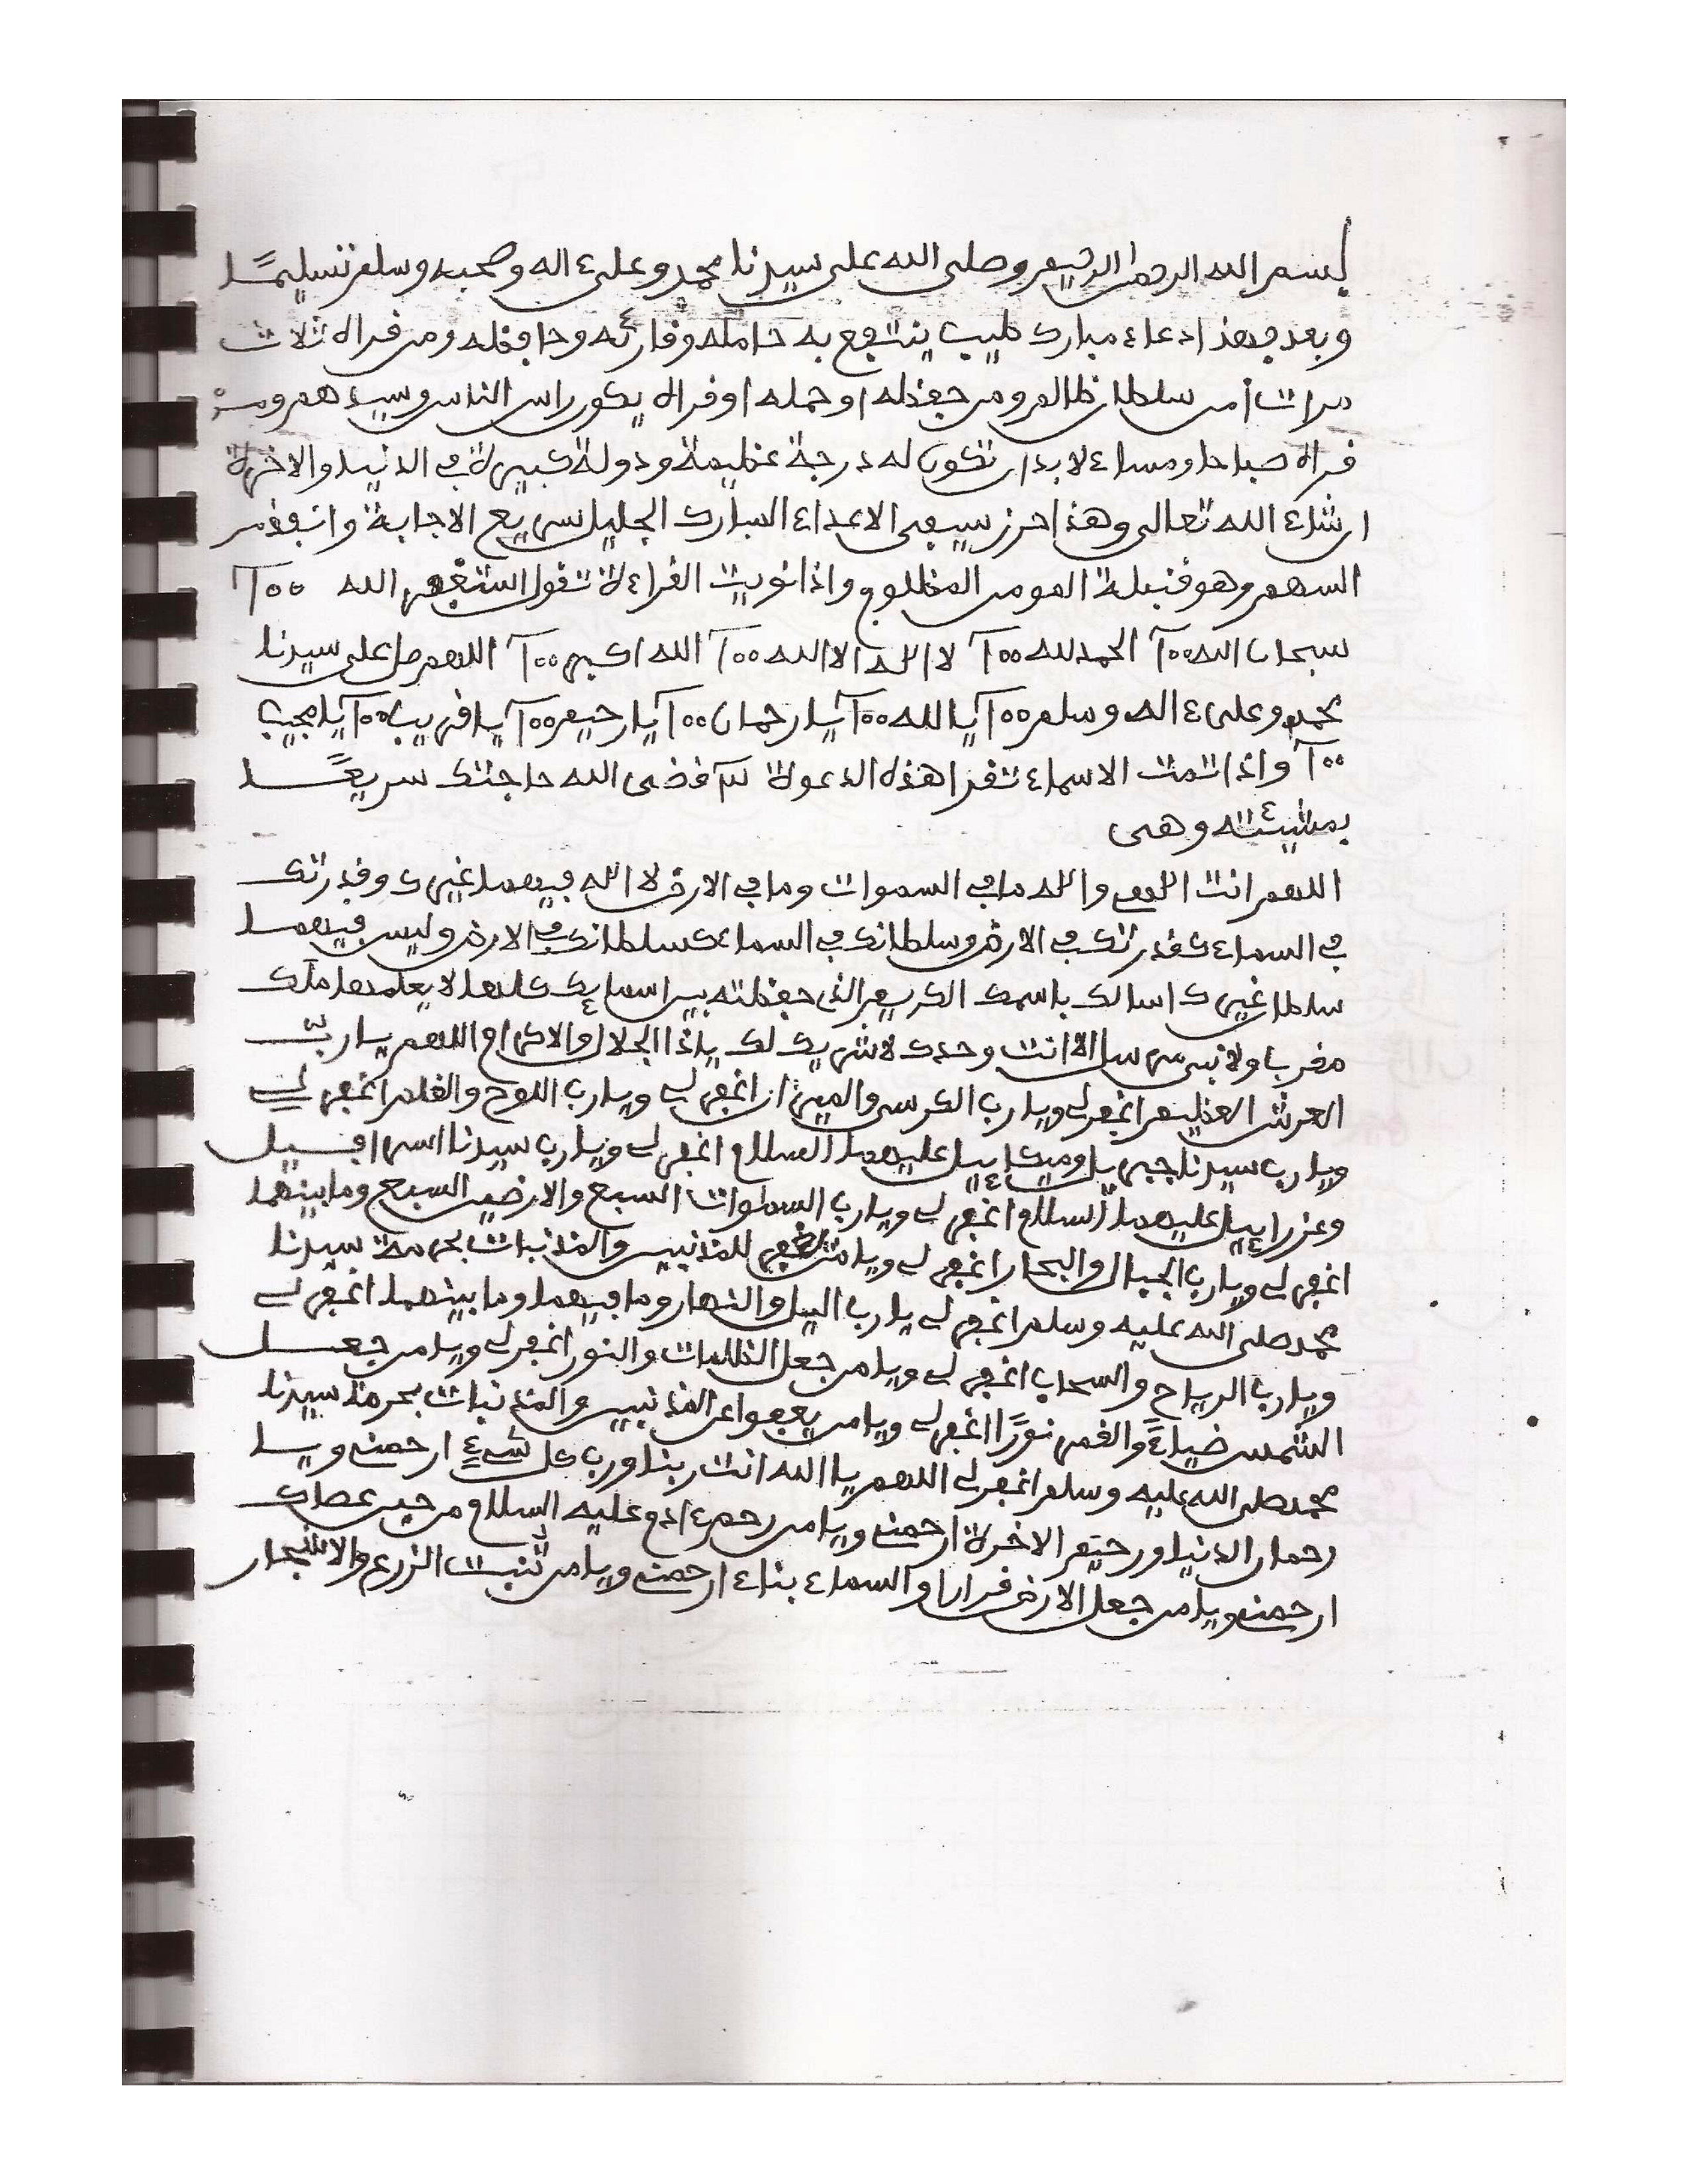 بسم الله الرحمن الرحيم وصلى الله على سيدنا محمد وعلى ءاله وصحبه وسلم تسليمًا
وبعد فهذا دعاء مبارك طيب ينتفع به حامله وقارئه وحافظه ومن قراه ثلاث
مرات امن سلطان ظالم ومن حفظه او حمله او قراه يكون راس الناس وسيدهم ومن
قراه صباحا ومساء لابد ان تكون له درجة عظيمة ودولة كبيرة في الدنيا والاخرة
ان شاء الله تعالى وهذا حرز سيفى الاعداء المبارك الجليل سريع الاجابة وانفذ من
السهم وهو قنبلة المومن المظلوم واذا نويت القراءة تقول استغفر الله ١٠٠
سبحان الله ١٠٠ الحمد لله ١٠٠ لا اله الا الله ١٠٠ الله اكبر ١٠٠ اللهم صل على سيدنا
محمد وعلى ءاله وسلم ١٠٠ يا الله ١٠٠ يا رحمان ١٠٠ يا رحيم ١٠٠ يا قريب ١٠٠ يا مجيب
١٠٠ واذا تمت الاسماء تقرا هذه الدعوة قضى الله حاجتك سريعًا
بمشيئته وهى
اللهم انت اله واله ما في السموات وما في الارض لا اله فيهما غيرك وقدرتك
في السماء كقدرتك في الارض وسلطانك في السماء كسلطانك في الارض وليس فيهما
سلطا غيرك اسالك باسمك الكريم الذي حفظته بين اسمايك كلها لا يعلمها ملك
مقرب ولا نبى مرسل الا انت وحدك لا شريك لك ياذا الجلال والاكرام اللهم يا ربّ
العرش العظيم اغفر لي ويارب الكرسى والميزان اغفر لي ويارب اللوح والقلم اغفر لي
ويارب سيدنا جبريل وميكاييل عليهما السلام اغفر لي ويارب سيدنا اسرافيل
وعزراييل عليهما السلام اغفر لي ويارب السموات السبع والارضين السبع وما بينهما
اغفر لي ويارب الجبال والبحار اغفر لي ويا من يغفر للمذنبين والمذنبات بحرمة سيدنا
محمد صلى الله عليه وسلم اغفر لي يارب اليل والنهار وما فيهما وما بينهما اغفر لي
ويارب الرياح والسحاب اغفر لي ويامن جعل الظلمات والنور اغفر لي ويامن جعل
الشمس ضياءً والقمر نورًا اغفر لي ويامن يعفوا عن المذنبين والمذنبات بحرمة سيدنا
محمد صلى الله عليه وسلم اغفر لي اللهم يا الله انت ربنا ورب كل شيء ارحمني ويا
رحمان الدنيا ورحيم الاخرة ارحمني ويامن رحم ءادم عليه السلام من حين عصاك
ارحمني ويامن جعل الارض قرارا والسماء بناء ارحمني ويامن تنبت الزرع والاشجار